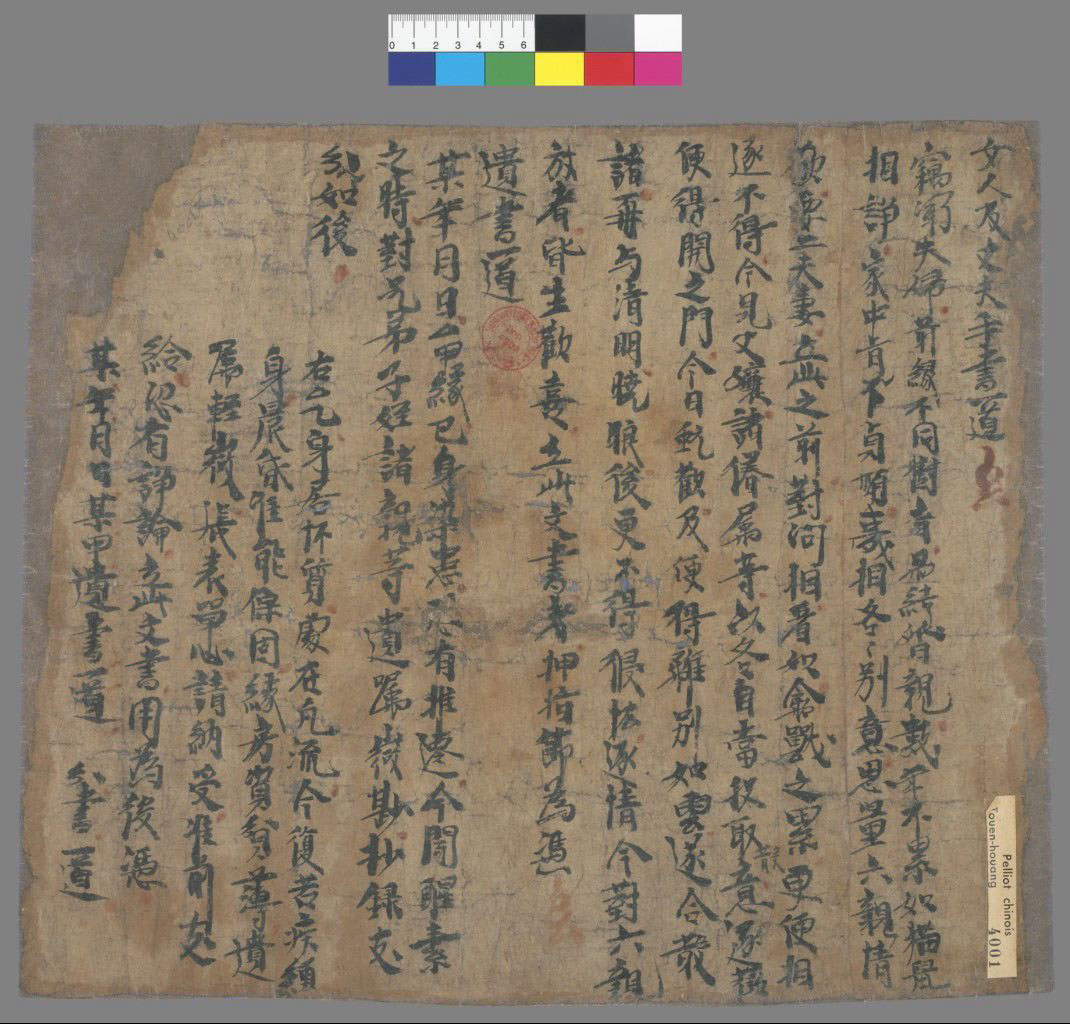 女人及丈夫手書一道
竊聞夫婦前緣不同樹者易結婚親數年不累如猫鼠
相諍家中肯不貞順義相各〻別意思量六親情
夫妻立此之前對問相看如禽獸之累更便相
逐不得今見父孃諸眷屬等以各自當投取散意逐歡
便得開之門今日歡及便得離別如雲遂合散
諸再与清明曉眼後更不得侵狀逐情今對六親
放者皆生歡喜立此文書者押指節為憑
遺書一道
某年月日厶甲緣已身染患恐有推遷今聞醒素
之時對兄弟子姪諸親等遺囑歲勘抄錄支
分如後
右厶乙身居怀質處在凡流今復苦疾纏
身晨昏難能保固緣房資貧薄遺
囑輕微張表單心請納受准前支
給恐有諍論立此文書用為後憑
某年月日某甲遺書一道 分書一道
0 1 2 3 4 5 6
Pelliot chinois
Touen-houang
4001